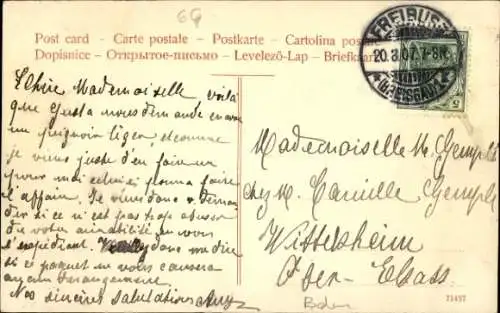 69
Post card - Carte postale - Postkarte - Cartolina postale
Dopisnice - Открытое письмо - Levelező-Lap - Briefkaart
FREIBURG
20.3.07. 7-8N.
(BREISGAU)
5
Chère Mademoiselle, voilà
que Gusta nous demande encore
un peignoir léger, et comme
je viens juste d'en faire un
pour moi celui-ci pourra faire
l'affaire. Je viens donc
si ce n'est pas trop abuser
de votre amabilité en vous
l'expédiant. donc me dire
si ce paquet ne vous causera
aucun dérangement.
Nos sincères salutations
Mademoiselle M. Gemple
chez M. Camille Gemple
Wittelsheim
Ober-Elsass
Baden
71457